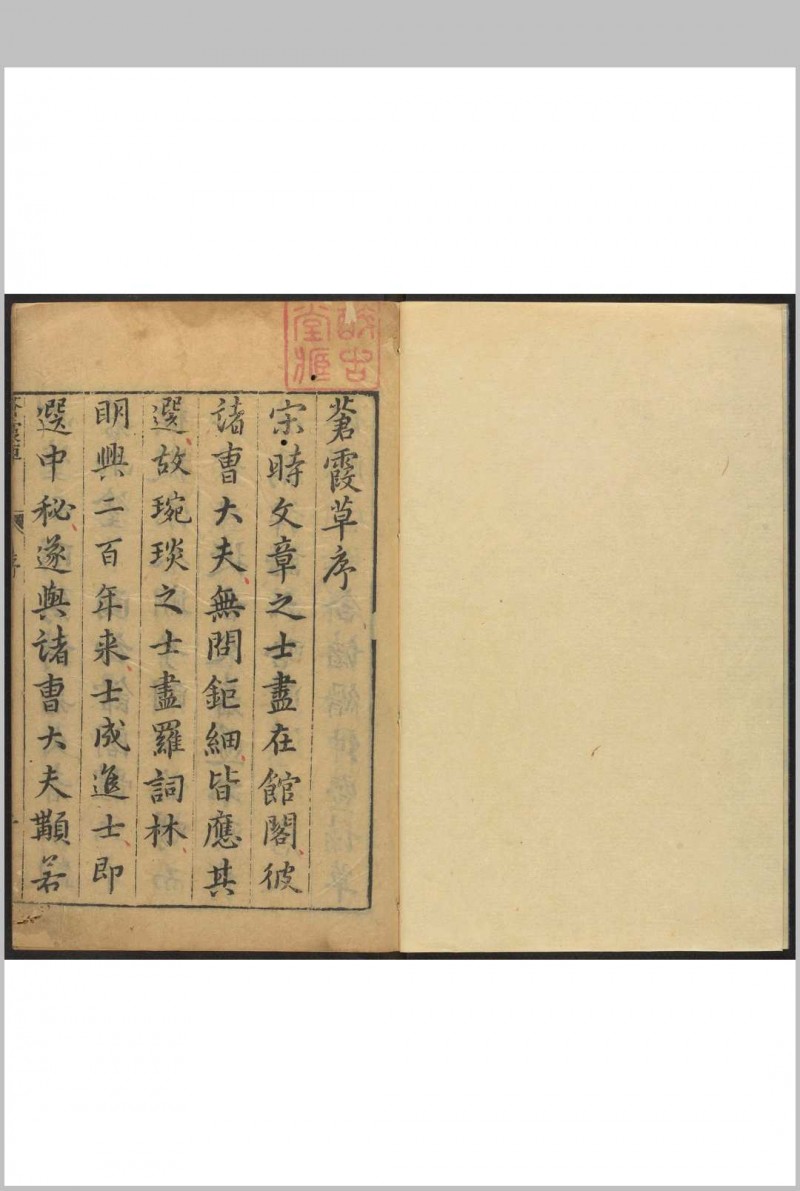 蒼霞草序
宋時文章之士盡在館閣彼
諸曹大夫無問鉅細皆應其
選故琬琰之士盡羅詞林
明興二百年来士成進士即
選中秘遂與諸曹大夫顜若
蒼霞草
序